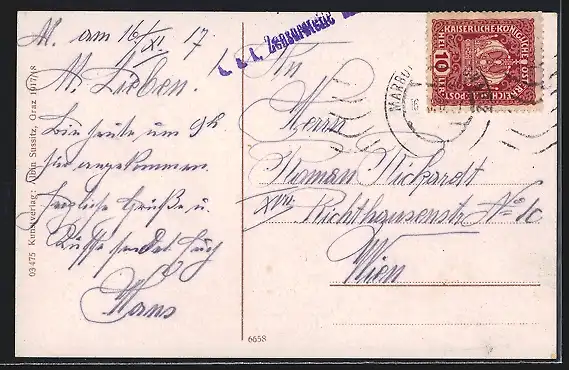 M. am 16/XI. 17.
M. Lieben.
Bin heute um 9h
hier angekommen.
Herzliche Grüße u.
Küsse sendet Euch
Hans
03475 Kunstverlag: Albin Sussitz, Graz 1917/18
6658
k. u. k. Zensurstelle
KAISERLICHE KÖNIGLICHE ÖSTERREICHISCHE POST
10 HELLER 10
MARBURG
16
An
Herrn
Roman Rickardt
XVII. Richthausenstr. No 1c
Wien